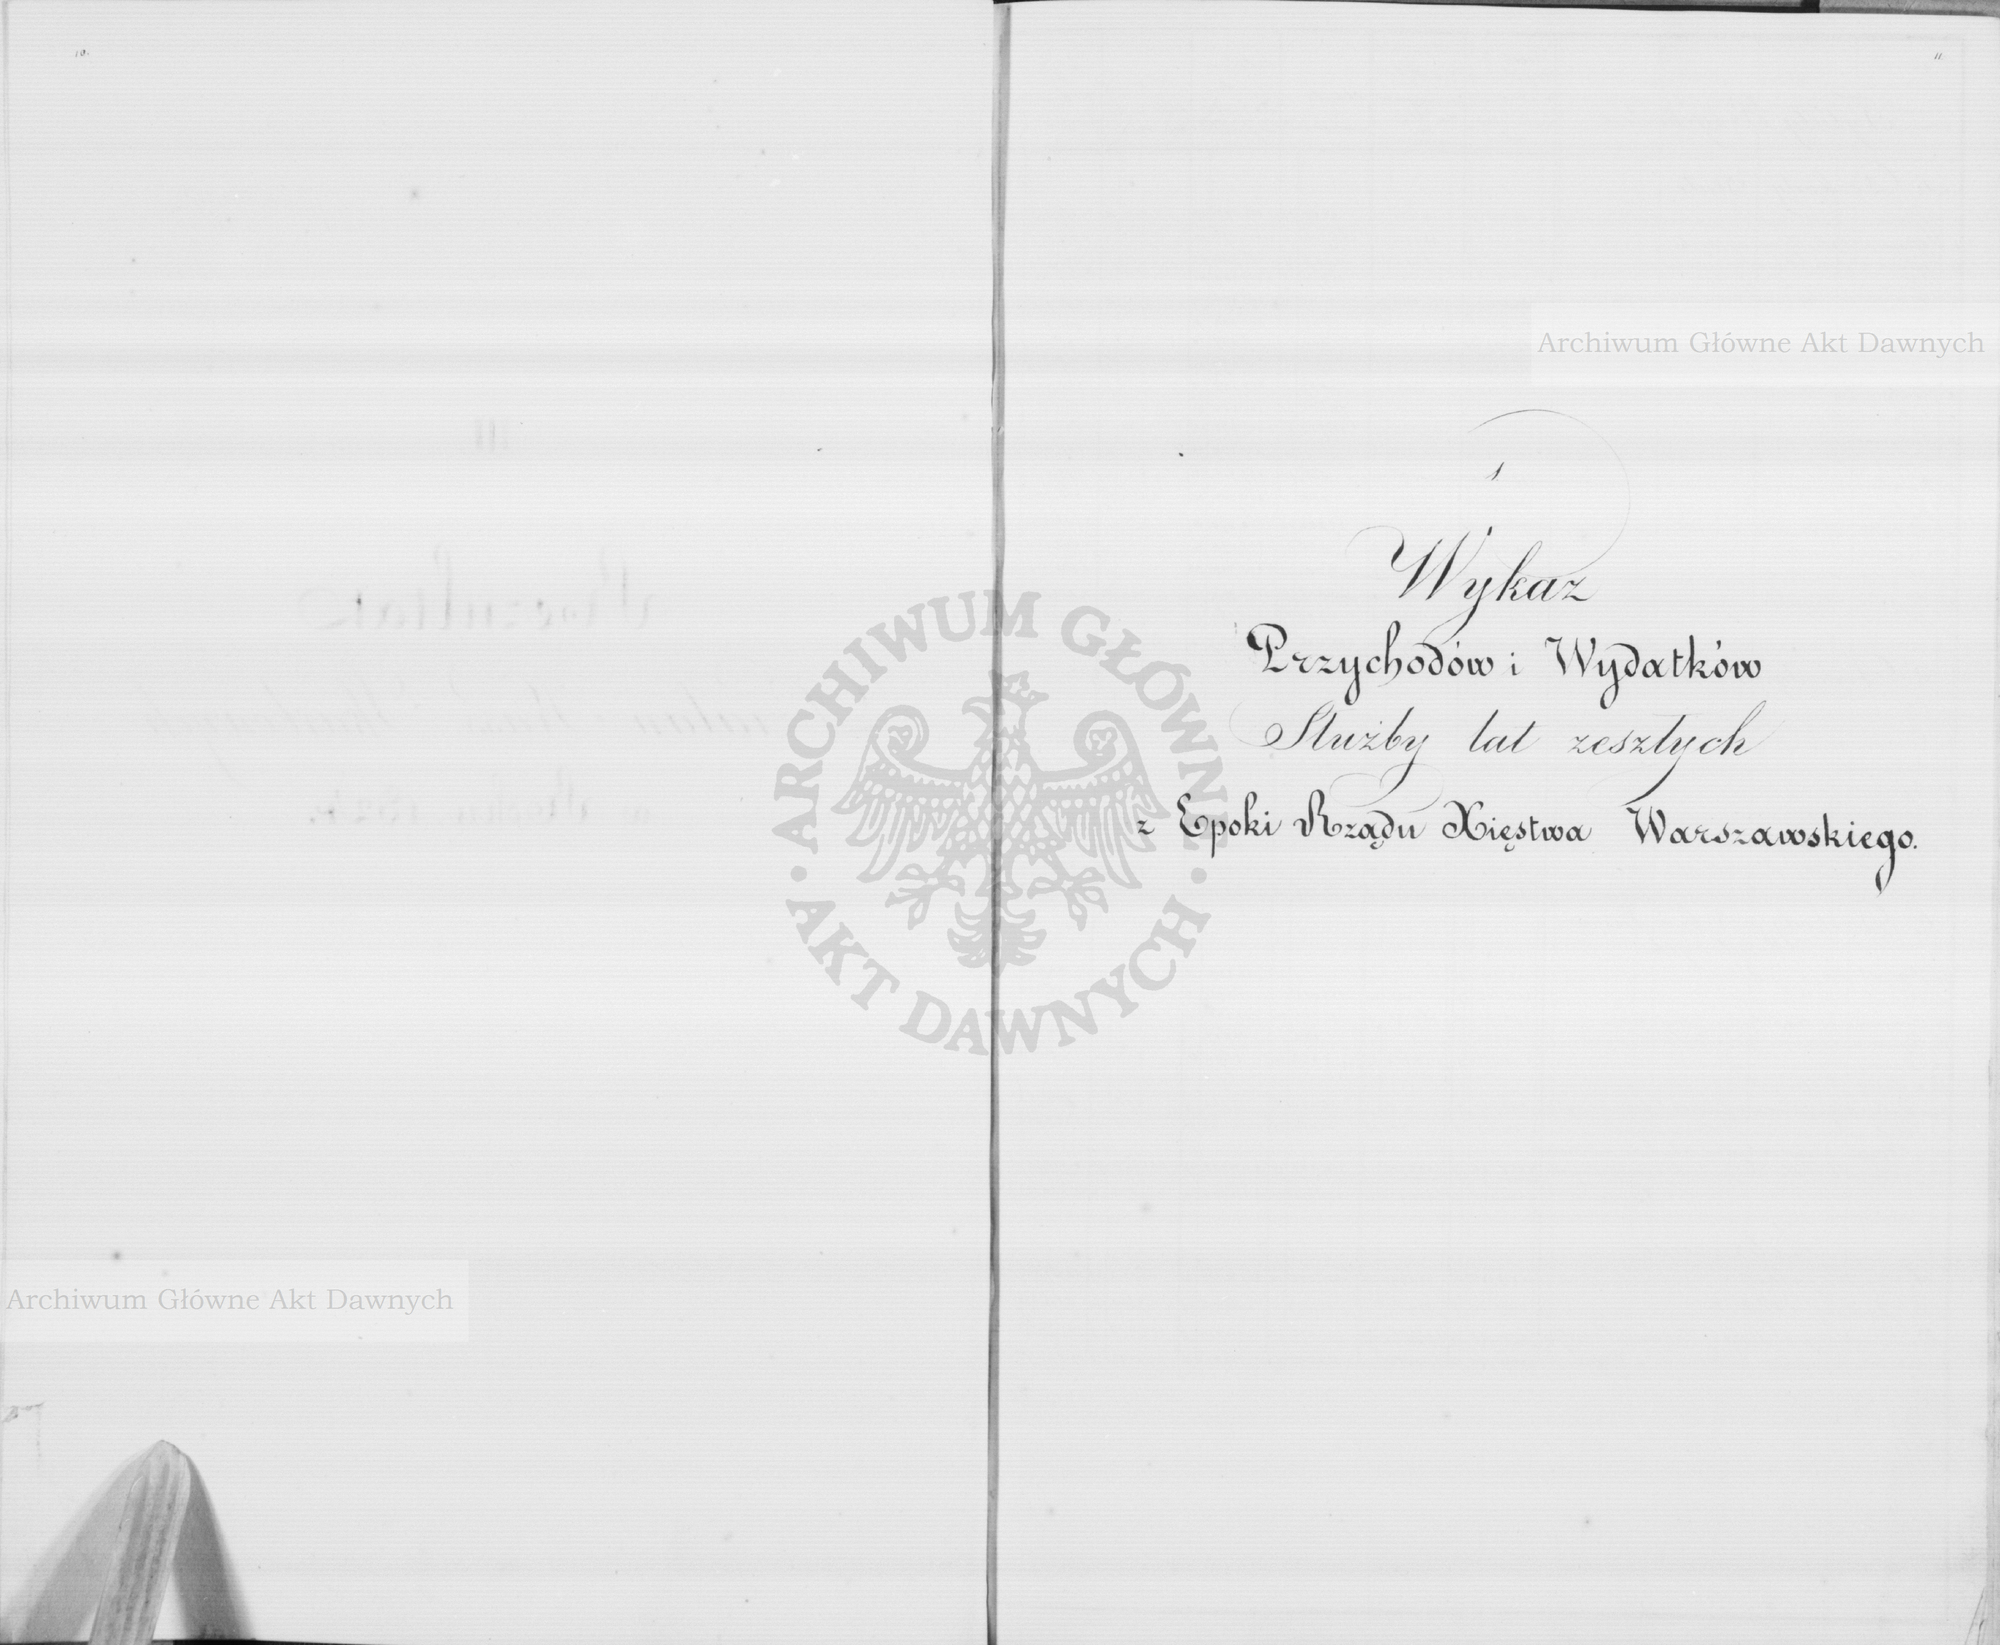 10.
11
1
Wykaz
Przychodów i Wydatków
Służby lat zeszłych
z Epoki Rządu Xięstwa Warszawskiego.
Archiwum Główne Akt Dawnych
ARCHIWUM GŁÓWNE
· AKT DAWNYCH ·
Archiwum Główne Akt Dawnych